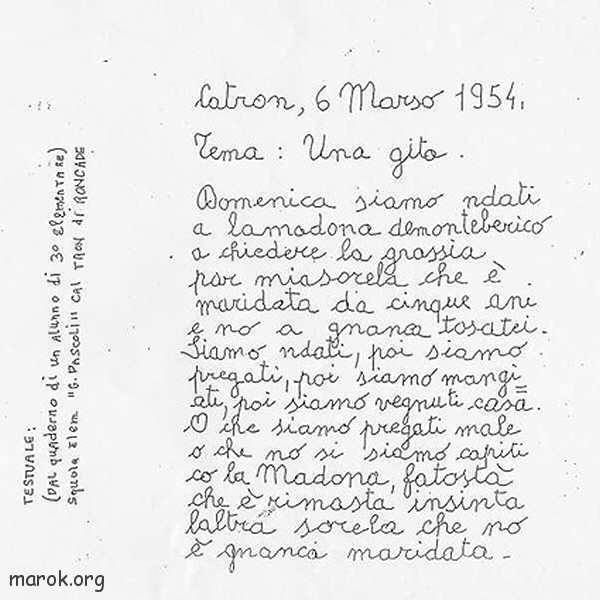 Catron, 6 Marso 1954.
Tema : Una gita .
Domenica siamo ndati
a lamadona demonteberico
a chiedere la grassia
par miasorela che è
maridata da cinque ani
e no a gnanca tosatei.
Siamo ndati, poi siamo
pregati, poi siamo mangi
ati, poi siamo vegnuti casa.
O che siamo pregati male
o che no si siamo capiti
co la Madona, fatostà
che è rimasta insinta
laltra sorela che no
è gnanca maridata -
TESTUALE:
(DAL quaderno di un alunno di 3a elementare)
squola elem "G. PASCOLI" CAL TRON di RONCADE
marok.org